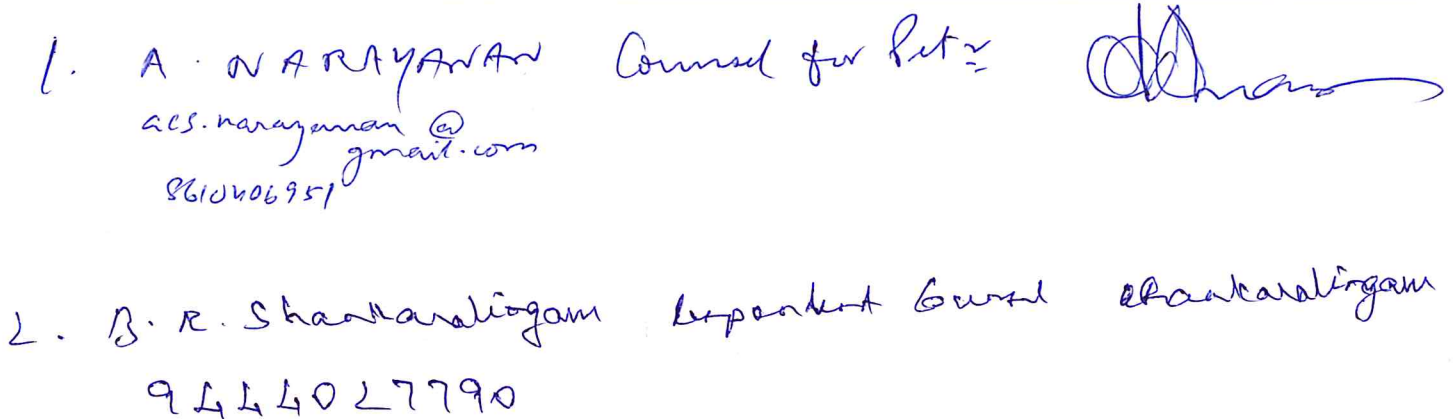 1. A. NARAYANAN Counsel for Petr
acs.narayanan@
gmail.com
8610406951
2. B.R. Shankaralingam Respondent Counsel Shankaralingam
9444027790